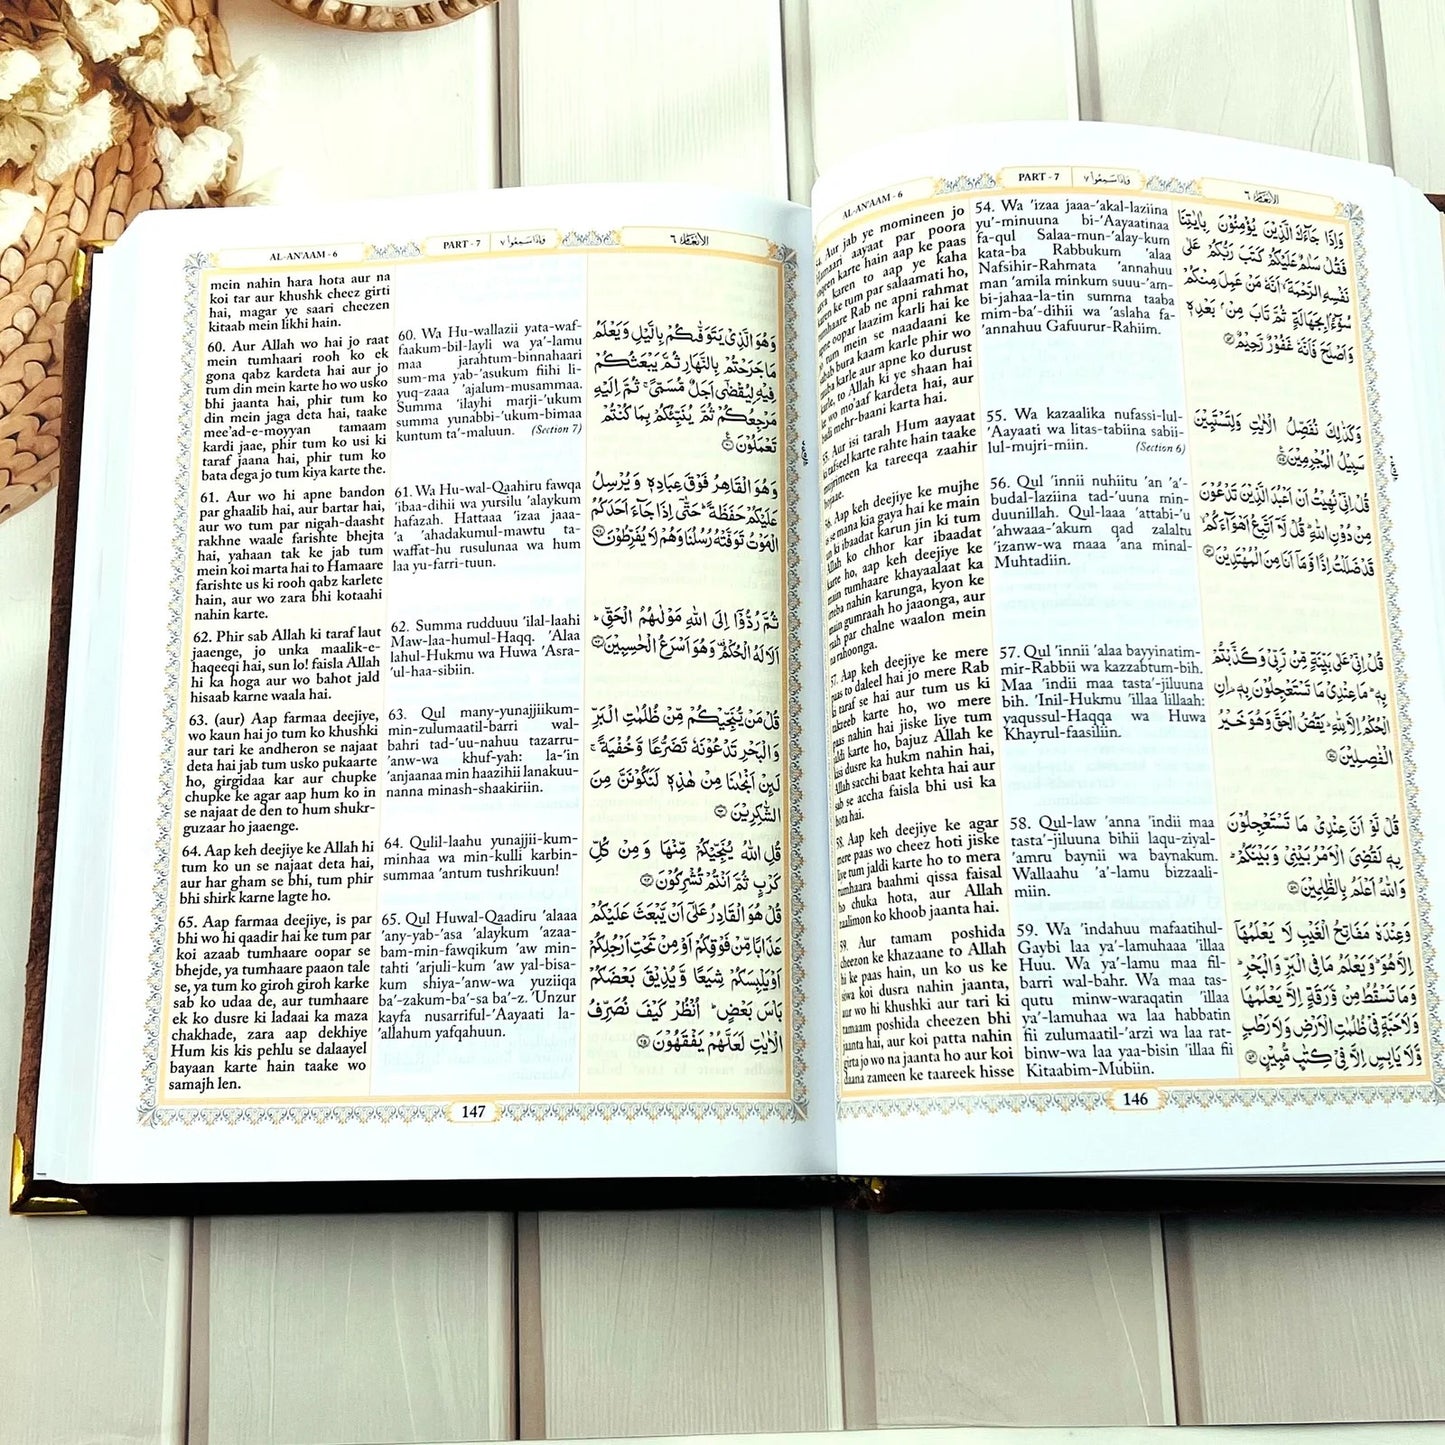 AL-AN'AAM - 6
PART - 7
وَاِذَا سَمِعُوا ٧
الأنعام ٦
Aur jab ye momineen jo
aayaat par poora
karte hain aap ke paas
karen to aap ye kaha
karen ke tum par salaamati ho,
Rab ne apni rahmat
apne oopar laazim karli hai ke
tum mein se naadaani ke
bura kaam karle phir wo
karle aur apne ko durust
karle, to Allah ki ye shaan hai
ke wo mo'aaf kardeta hai, aur
badi mehr-baani karta hai.
55. Aur isi tarah Hum aayaat
ki tafseel karte rahte hain taake
mujrimeen ka tareeqa zaahir
hojaae.
56. Aap keh deejiye ke mujhe
is se mana kia gaya hai ke main
un ki ibaadat karun jin ki tum
Allah ko chhor kar ibaadat
karte ho, aap keh deejiye ke
main tumhaare khayaalaat ka
nahin karunga, kyon ke
main gumraah ho jaaonga, aur
raah par chalne waalon mein
na rahoonga.
57. Aap keh deejiye ke mere
paas to daleel hai jo mere Rab
ki taraf se hai aur tum us ki
takzeeb karte ho, wo mere
paas nahin hai jiske liye tum
jaldi karte ho, bajuz Allah ke
kisi dusre ka hukm nahin hai,
Allah sacchi baat kehta hai aur
sab se accha faisla bhi usi ka
hota hai.
58. Aap keh deejiye ke agar
mere paas wo cheez hoti jiske
liye tum jaldi karte ho to mera
tumhaara baahmi qissa faisal
ho chuka hota, aur Allah
zaalimon ko khoob jaanta hai.
59. Aur tamam poshida
cheezon ke khazaane to Allah
hi ke paas hain, un ko us ke
siwa koi dusra nahin jaanta,
aur wo hi khushki aur tari ki
tamaam poshida cheezen bhi
jaanta hai, aur koi patta nahin
girta jo wo na jaanta ho aur koi
daana zameen ke taareek hisse
54. Wa 'izaa jaaa-'akal-laziina
yu'-minuuna bi-'Aayaatinaa
fa-qul Salaa-mun-'alay-kum
kata-ba Rabbukum 'alaa
Nafsihir-Rahmata 'annahuu
man 'amila minkum suuu-'am-
bi-jahaa-la-tin summa taaba
mim-ba'-dihii wa 'aslaha fa-
'annahuu Gafuurur-Rahiim.
55. Wa kazaalika nufassi-lul-
'Aayaati wa litas-tabiina sabii-
lul-mujri-miin. (Section 6)
56. Qul 'innii nuhiitu 'an 'a'-
budal-laziina tad-'uuna min-
duunillah. Qul-laaa 'attabi-'u
'ahwaaa-'akum qad zalaltu
'izanw-wa maaa 'ana minal-
Muhtadiin.
57. Qul 'innii 'alaa bayyinatim-
mir-Rabbii wa kazzabtum-bih.
Maa 'indii maa tasta'-jiluuna
bih. 'Inil-Hukmu 'illaa lillaah:
yaqussul-Haqqa wa Huwa
Khayrul-faasiliin.
58. Qul-law 'anna 'indii maa
tasta'-jiluuna bihii laqu-ziyal-
'amru baynii wa baynakum.
Wallaahu 'a'-lamu bizzaali-
miin.
59. Wa 'indahuu mafaatihul-
Gaybi laa ya'-lamuhaaa 'illaa
Huu. Wa ya'-lamu maa fil-
barri wal-bahr. Wa maa tas-
qutu minw-waraqatin 'illaa
ya'-lamuhaa wa laa habbatin
fii zulumaatil-'arzi wa laa rat-
binw-wa laa yaa-bisin 'illaa fii
Kitaabim-Mubiin.
وَاِذَا جَآءَكَ الَّذِيْنَ يُؤْمِنُوْنَ بِاٰيٰتِنَا
فَقُلْ سَلٰمٌ عَلَيْكُمْ كَتَبَ رَبُّكُمْ عَلٰى
نَفْسِهِ الرَّحْمَةَ ۙ اَنَّهٗ مَنْ عَمِلَ مِنْكُمْ
سُوْٓءًۢا بِجَهَالَةٍ ثُمَّ تَابَ مِنْۢ بَعْدِهٖ
وَاَصْلَحَ فَاَنَّهٗ غَفُوْرٌ رَّحِيْمٌ ۝٥٤
وَكَذٰلِكَ نُفَصِّلُ الْاٰيٰتِ وَلِتَسْتَبِيْنَ
سَبِيْلُ الْمُجْرِمِيْنَ ۝٥٥
قُلْ اِنِّيْ نُهِيْتُ اَنْ اَعْبُدَ الَّذِيْنَ تَدْعُوْنَ
مِنْ دُوْنِ اللّٰهِ ؕ قُلْ لَّآ اَتَّبِعُ اَهْوَآءَكُمْ ۙ
قَدْ ضَلَلْتُ اِذًا وَّمَآ اَنَا مِنَ الْمُهْتَدِيْنَ ۝٥٦
قُلْ اِنِّيْ عَلٰى بَيِّنَةٍ مِّنْ رَّبِّيْ وَكَذَّبْتُمْ
بِهٖ ؕ مَا عِنْدِيْ مَا تَسْتَعْجِلُوْنَ بِهٖ ؕ اِنِ
الْحُكْمُ اِلَّا لِلّٰهِ ؕ يَقُصُّ الْحَقَّ وَهُوَ خَيْرُ
الْفٰصِلِيْنَ ۝٥٧
قُلْ لَّوْ اَنَّ عِنْدِيْ مَا تَسْتَعْجِلُوْنَ
بِهٖ لَقُضِيَ الْاَمْرُ بَيْنِيْ وَبَيْنَكُمْ ؕ
وَاللّٰهُ اَعْلَمُ بِالظّٰلِمِيْنَ ۝٥٨
وَعِنْدَهٗ مَفَاتِحُ الْغَيْبِ لَا يَعْلَمُهَآ
اِلَّا هُوَ ؕ وَيَعْلَمُ مَا فِي الْبَرِّ وَالْبَحْرِ ؕ
وَمَا تَسْقُطُ مِنْ وَّرَقَةٍ اِلَّا يَعْلَمُهَا
وَلَا حَبَّةٍ فِيْ ظُلُمٰتِ الْاَرْضِ وَلَا رَطْبٍ
وَّلَا يَابِسٍ اِلَّا فِيْ كِتٰبٍ مُّبِيْنٍ ۝٥٩
146
AL-AN'AAM - 6
PART - 7
وَاِذَا سَمِعُوا ٧
الأنعام ٦
mein nahin hara hota aur na
koi tar aur khushk cheez girti
hai, magar ye saari cheezen
kitaab mein likhi hain.
60. Aur Allah wo hai jo raat
mein tumhaari rooh ko ek
gona qabz kardeta hai aur jo
tum din mein karte ho wo usko
bhi jaanta hai, phir tum ko
din mein jaga deta hai, taake
mee'ad-e-moyyan tamaam
kardi jaae, phir tum ko usi ki
taraf jaana hai, phir tum ko
bata dega jo tum kiya karte the.
61. Aur wo hi apne bandon
par ghaalib hai, aur bartar hai,
aur wo tum par nigah-daasht
rakhne waale farishte bhejta
hai, yahaan tak ke jab tum
mein koi marta hai to Hamaare
farishte us ki rooh qabz karlete
hain, aur wo zara bhi kotaahi
nahin karte.
62. Phir sab Allah ki taraf laut
jaaenge, jo unka maalik-e-
haqeeqi hai, sun lo! faisla Allah
hi ka hoga aur wo bahot jald
hisaab karne waala hai.
63. (aur) Aap farmaa deejiye,
wo kaun hai jo tum ko khushki
aur tari ke andheron se najaat
deta hai jab tum usko pukaarte
ho, girgidaa kar aur chupke
chupke ke agar aap hum ko in
se najaat de den to hum shukr-
guzaar ho jaaenge.
64. Aap keh deejiye ke Allah hi
tum ko un se najaat deta hai,
aur har gham se bhi, tum phir
bhi shirk karne lagte ho.
65. Aap farmaa deejiye, is par
bhi wo hi qaadir hai ke tum par
koi azaab tumhaare oopar se
bhejde, ya tumhaare paaon tale
se, ya tum ko giroh giroh karke
sab ko udaa de, aur tumhaare
ek ko dusre ki ladaai ka maza
chakhade, zara aap dekhiye
Hum kis kis pehlu se dalaayel
bayaan karte hain taake wo
samajh len.
60. Wa Hu-wallazii yata-waf-
faakum-bil-layli wa ya'-lamu
maa jarahtum-binnahaari
sum-ma yab-'asukum fiihi li-
yuq-zaaa 'ajalum-musammaa.
Summa 'ilayhi marji-'ukum
summa yunabbi-'ukum-bimaa
kuntum ta'-maluun. (Section 7)
61. Wa Hu-wal-Qaahiru fawqa
'ibaa-dihii wa yursilu 'alaykum
hafazah. Hattaaa 'izaa jaaa-
'a 'ahadakumul-mawtu ta-
waffat-hu rusulunaa wa hum
laa yu-farri-tuun.
62. Summa rudduuu 'ilal-laahi
Maw-laa-humul-Haqq. 'Alaa
lahul-Hukmu wa Huwa 'Asra-
'ul-haa-sibiin.
63. Qul many-yunajjiikum-
min-zulumaatil-barri wal-
bahri tad-'uu-nahuu tazarru-
'anw-wa khuf-yah: la-'in
'anjaanaa min haazihii lanakuu-
nanna minash-shaakiriin.
64. Qulil-laahu yunajjii-kum-
minhaa wa min-kulli karbin-
summaa 'antum tushrikuun!
65. Qul Huwal-Qaadiru 'alaaa
'any-yab-'asa 'alaykum 'azaa-
bam-min-fawqikum aw min-
tahti 'arjuli-kum 'aw yal-bisa-
kum shiya-'anw-wa yuziiqa
ba'-zakum-ba'-sa ba'-z. 'Unzur
kayfa nusarriful-'Aayaati la-
'allahum yafqahuun.
وَهُوَ الَّذِيْ يَتَوَفّٰىكُمْ بِالَّيْلِ وَيَعْلَمُ
مَا جَرَحْتُمْ بِالنَّهَارِ ثُمَّ يَبْعَثُكُمْ
فِيْهِ لِيُقْضٰٓى اَجَلٌ مُّسَمًّى ۚ ثُمَّ اِلَيْهِ
مَرْجِعُكُمْ ثُمَّ يُنَبِّئُكُمْ بِمَا كُنْتُمْ
تَعْمَلُوْنَ ۝٦٠
وَهُوَ الْقَاهِرُ فَوْقَ عِبَادِهٖ وَيُرْسِلُ
عَلَيْكُمْ حَفَظَةً ؕ حَتّٰٓى اِذَا جَآءَ اَحَدَكُمُ
الْمَوْتُ تَوَفَّتْهُ رُسُلُنَا وَهُمْ لَا يُفَرِّطُوْنَ ۝٦١
ثُمَّ رُدُّوْٓا اِلَى اللّٰهِ مَوْلٰىهُمُ الْحَقِّ ؕ
اَلَا لَهُ الْحُكْمُ ۫ وَهُوَ اَسْرَعُ الْحٰسِبِيْنَ ۝٦٢
قُلْ مَنْ يُّنَجِّيْكُمْ مِّنْ ظُلُمٰتِ الْبَرِّ
وَالْبَحْرِ تَدْعُوْنَهٗ تَضَرُّعًا وَّخُفْيَةً ۚ
لَئِنْ اَنْجٰىنَا مِنْ هٰذِهٖ لَنَكُوْنَنَّ مِنَ
الشّٰكِرِيْنَ ۝٦٣
قُلِ اللّٰهُ يُنَجِّيْكُمْ مِّنْهَا وَمِنْ كُلِّ
كَرْبٍ ثُمَّ اَنْتُمْ تُشْرِكُوْنَ ۝٦٤
قُلْ هُوَ الْقَادِرُ عَلٰٓى اَنْ يَّبْعَثَ عَلَيْكُمْ
عَذَابًا مِّنْ فَوْقِكُمْ اَوْ مِنْ تَحْتِ اَرْجُلِكُمْ
اَوْ يَلْبِسَكُمْ شِيَعًا وَّيُذِيْقَ بَعْضَكُمْ
بَاْسَ بَعْضٍ ؕ اُنْظُرْ كَيْفَ نُصَرِّفُ
الْاٰيٰتِ لَعَلَّهُمْ يَفْقَهُوْنَ ۝٦٥
147